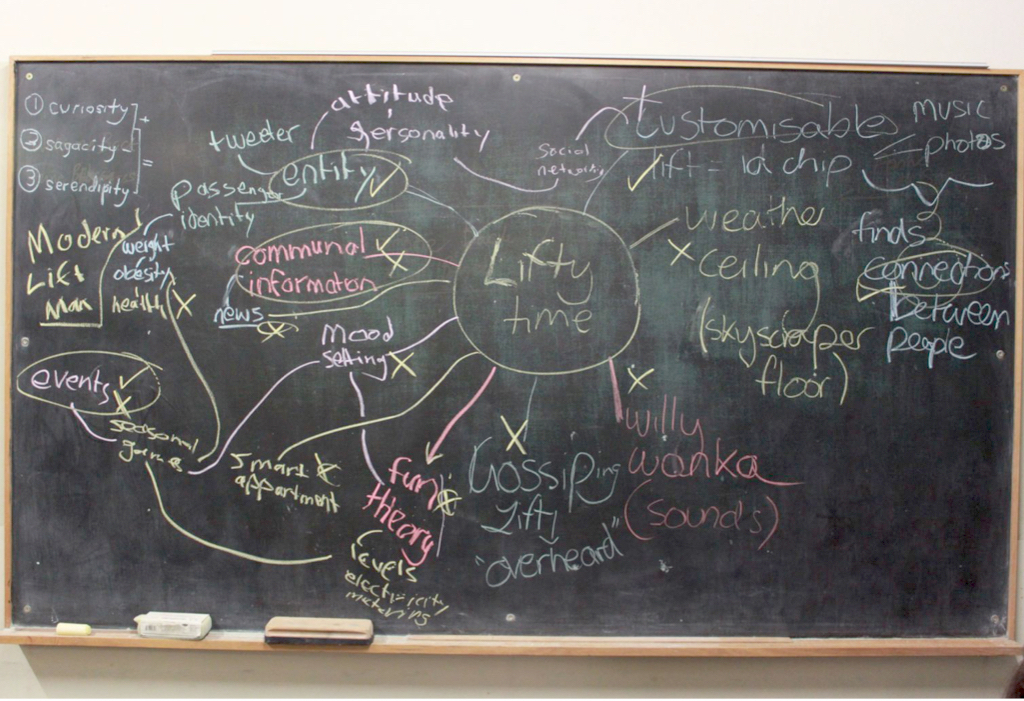 ① curiosity
② sagacity
③ serendipity
+
=
Modern
Lift
Man
tweeter
attitude
personality
entity
passenger
identity
weight
obesity
health
communal
information
news
Mood
setting
events
seasonal
games
smart
appartment
fun
theory
levels
electricity
Lifty
time
social
networks
customisable
lift = id chip
music
photos
finds
connections
between
people
weather
ceiling
(skyscraper
floor)
willy
wonka
(sounds)
Gossiping
Lift
"overheard"